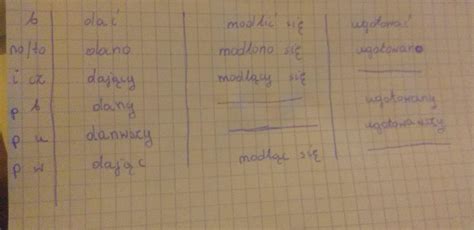 b dać modlić się ugotować
no/to dano modlono się ugotowano
i cz dający modlący się
p b dany ugotowany
p u danwszy ugotowawszy
p w dając modląc się